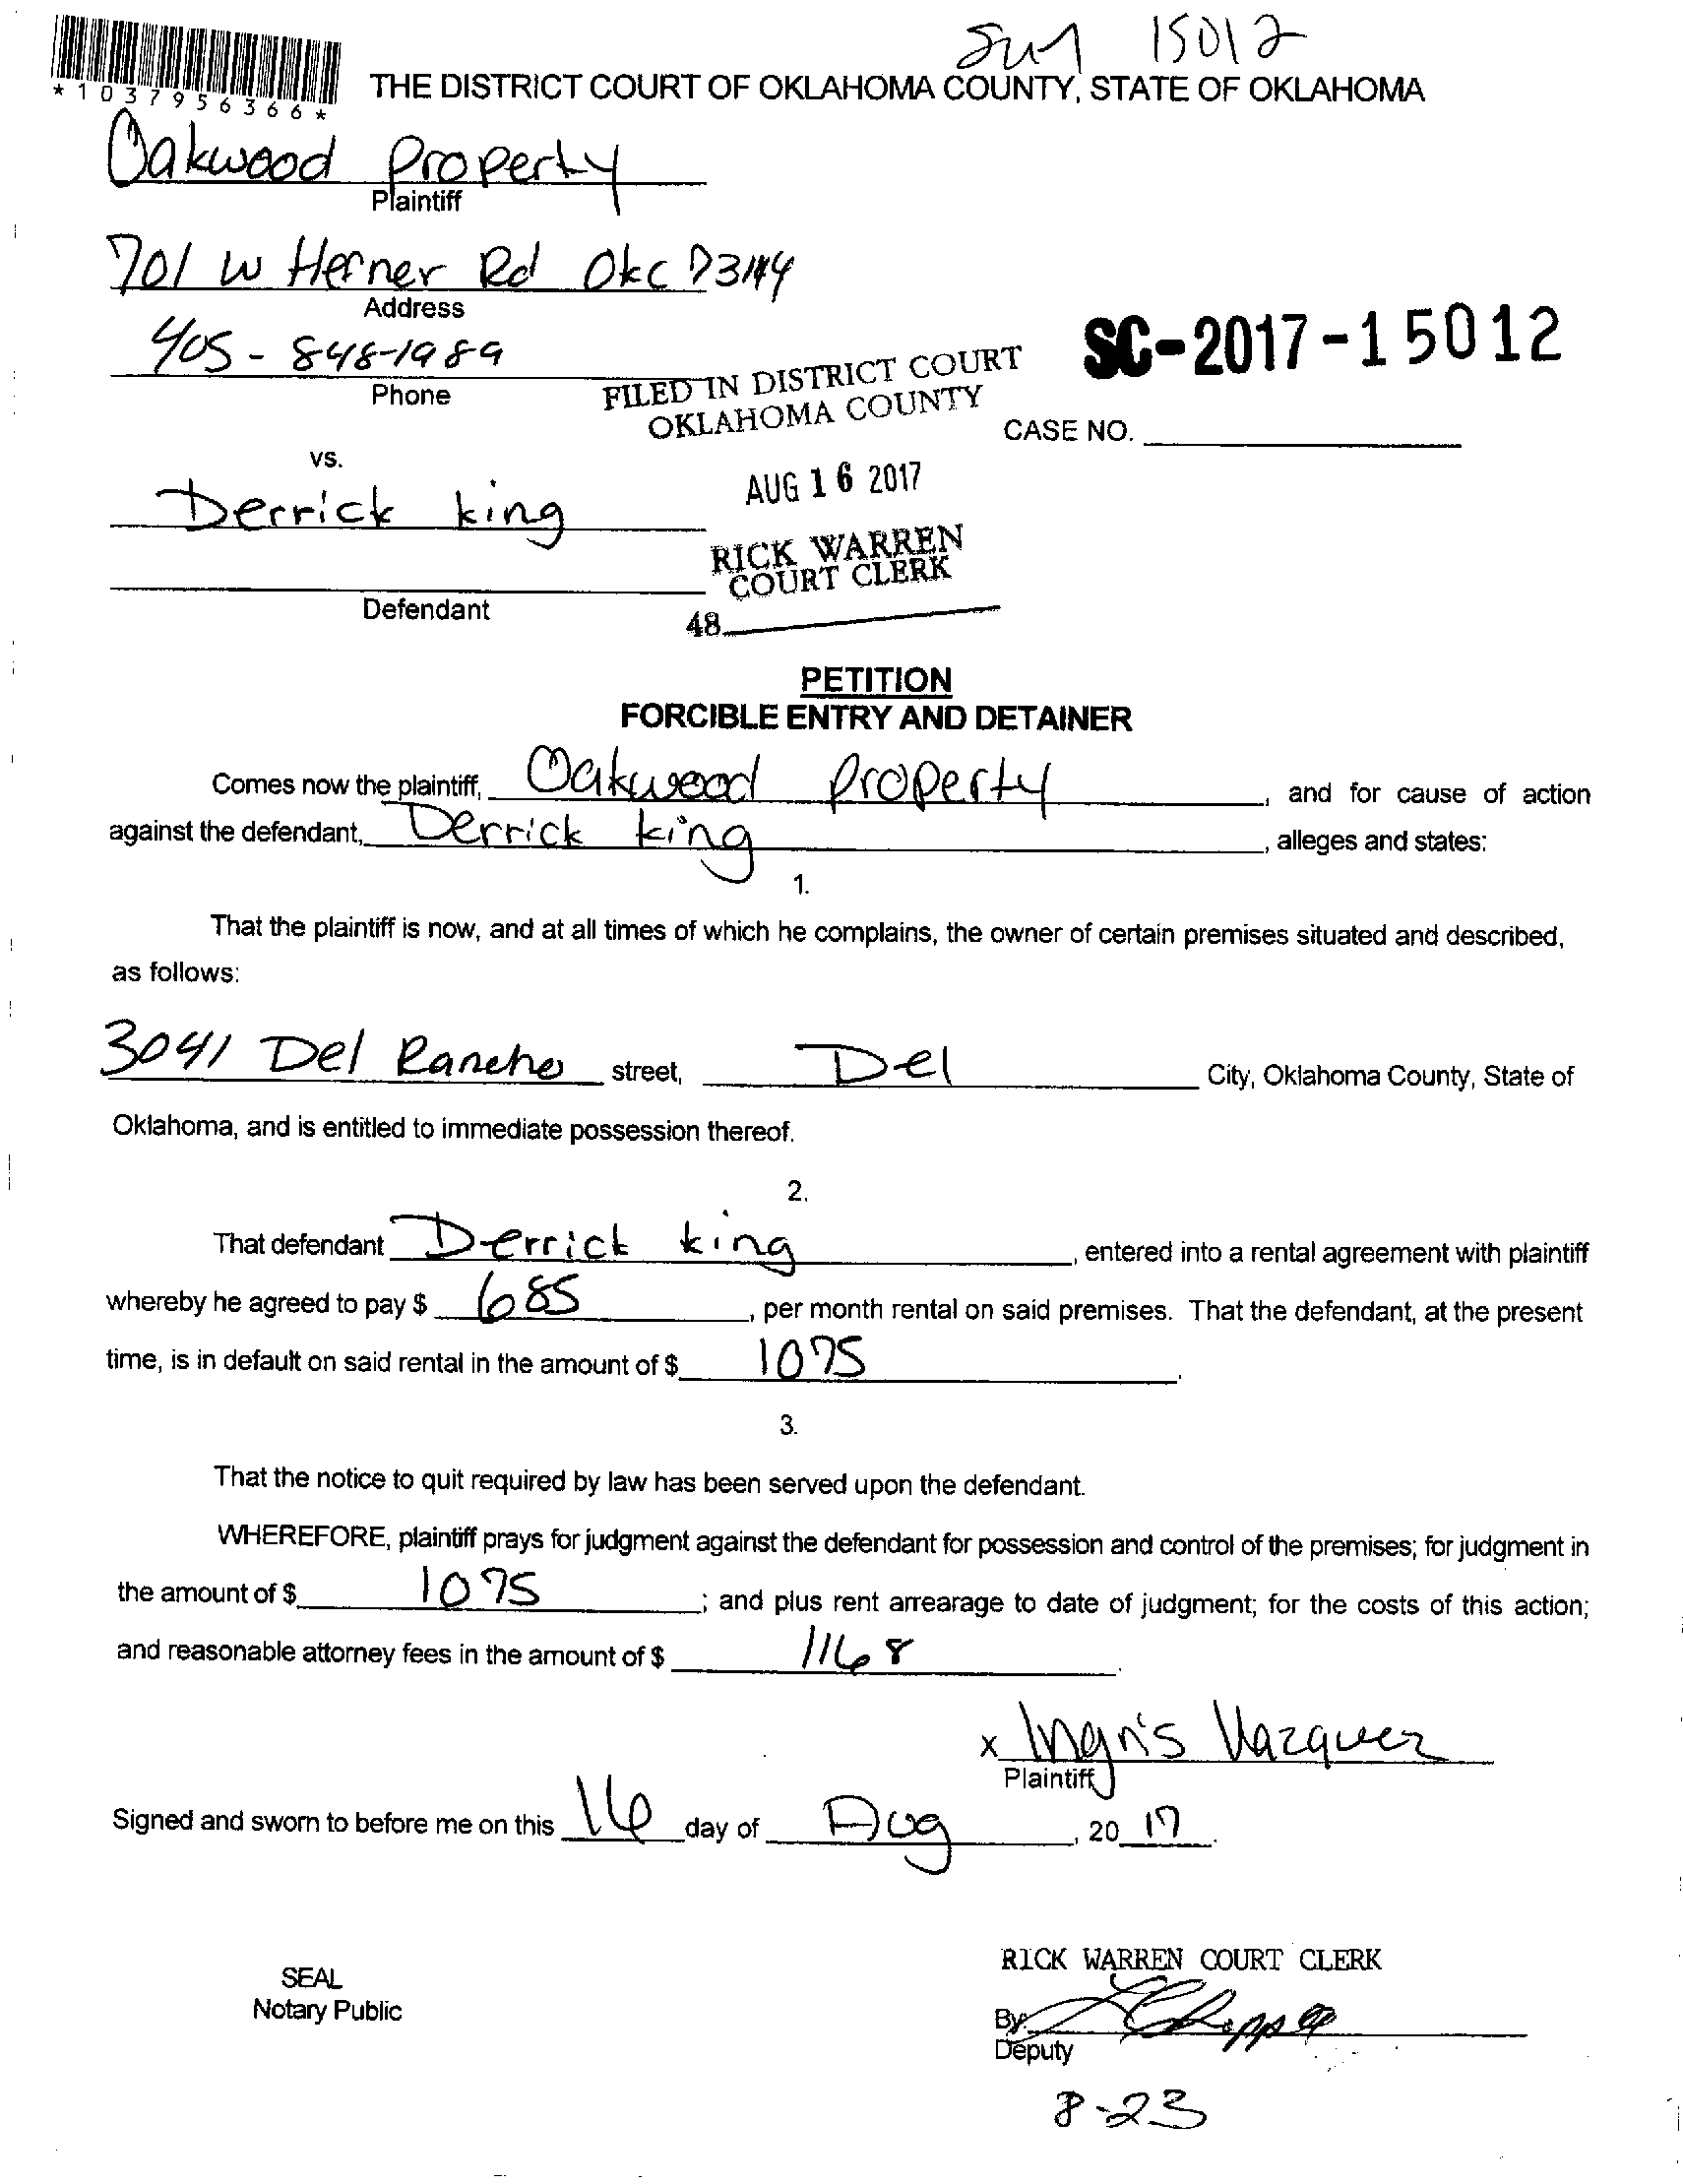 15012
*1037956366*
THE DISTRICT COURT OF OKLAHOMA COUNTY, STATE OF OKLAHOMA
Oakwood Property
Plaintiff
701 W Hefner Rd Okc 73114
Address
405-848-1989
Phone
SC-2017-15012
FILED IN DISTRICT COURT
OKLAHOMA COUNTY
CASE NO.
vs.
AUG 16 2017
Derrick king
RICK WARREN
COURT CLERK
Defendant
48
PETITION
FORCIBLE ENTRY AND DETAINER
Comes now the plaintiff, Oakwood Property, and for cause of action
against the defendant, Derrick king, alleges and states:
1.
That the plaintiff is now, and at all times of which he complains, the owner of certain premises situated and described,
as follows:
3041 Del Rancho street, Del City, Oklahoma County, State of
Oklahoma, and is entitled to immediate possession thereof.
2.
That defendant Derrick king, entered into a rental agreement with plaintiff
whereby he agreed to pay $ 685, per month rental on said premises. That the defendant, at the present
time, is in default on said rental in the amount of $ 1075.
3.
That the notice to quit required by law has been served upon the defendant.
WHEREFORE, plaintiff prays for judgment against the defendant for possession and control of the premises; for judgment in
the amount of $ 1075; and plus rent arrearage to date of judgment; for the costs of this action;
and reasonable attorney fees in the amount of $ 1168.
x Ingris Vazquez
Plaintiff
Signed and sworn to before me on this 16 day of Aug, 2017.
RICK WARREN COURT CLERK
SEAL
Notary Public
By
Deputy
8-23